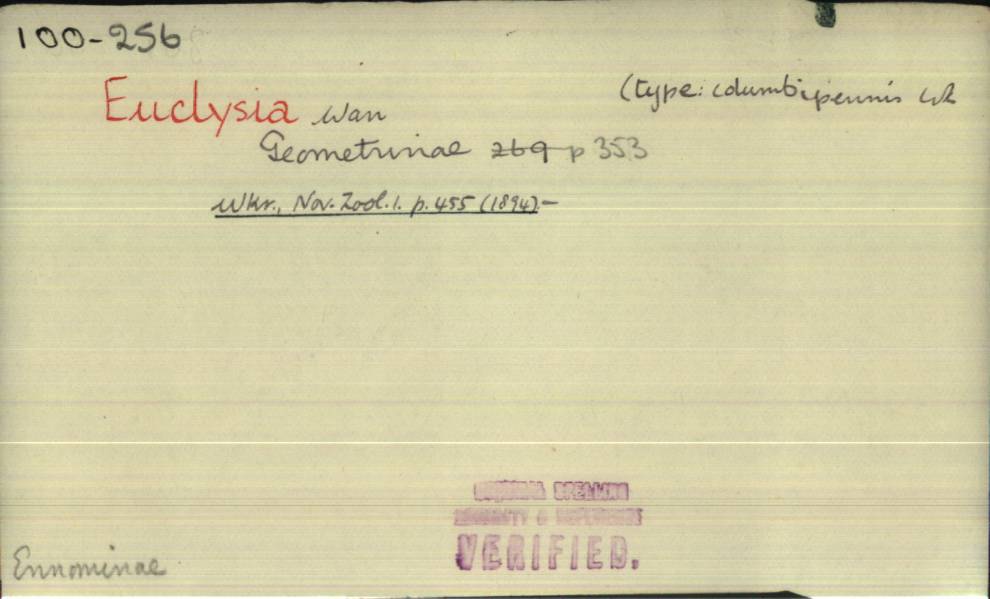 100-256
Euclysia Warr (type: columbipennis Wlk
Geometrinae 269 p 353
Wkr., Nov. Zool. 1. p. 455 (1894) —
ORIGINAL SPELLING
PRIORITY & REFERENCE
VERIFIED.
Ennominae